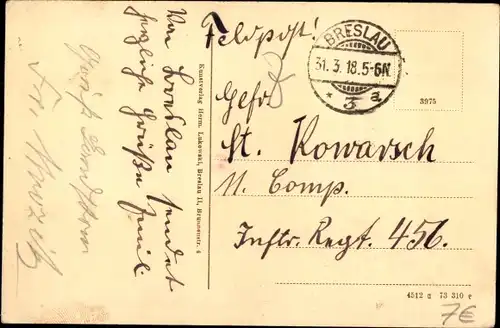 Feldpost!
BRESLAU
31.3.18.5-6N.
* 3 a
3975
Gefr.
St. Kowarsch
11. Comp.
Inftr. Regt. 456.
4512 a 73 310 r
7€
Kunstverlag Herm. Lukowski, Breslau II, Brunnenstr. 4
Von Breslau sendet
herzliche Grüße Emil
Gruß
Fr.